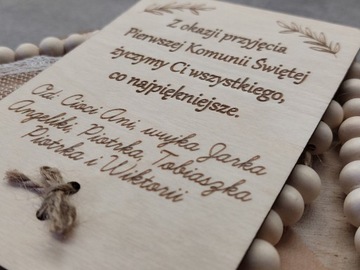 Z okazji przyjęcia
Pierwszej Komunii Świętej
życzymy Ci wszystkiego,
co najpiękniejsze.
Od: Cioci Ani, wujka Jarka
Angeliki, Piotrka, Tobiaszka
Piotrka i Wiktorii